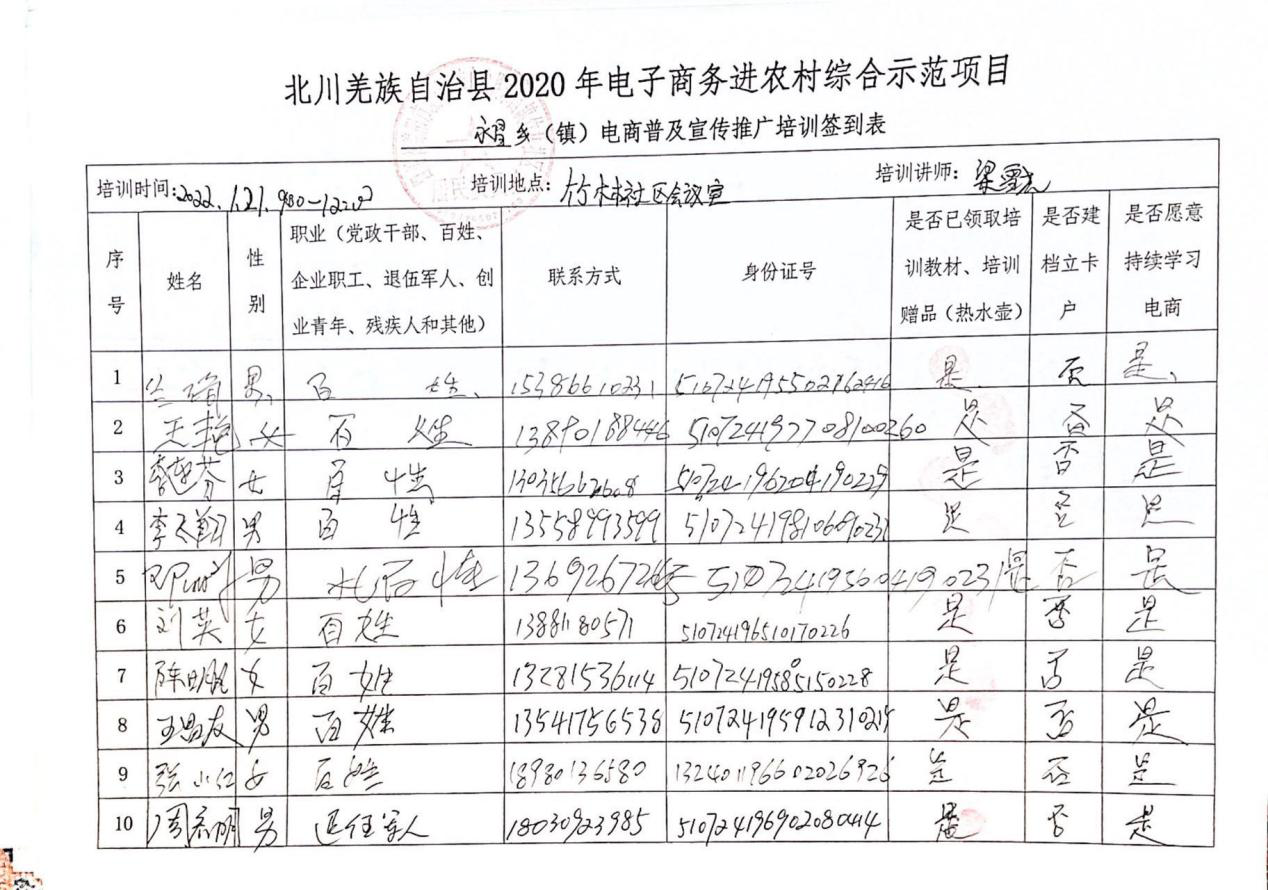 北川羌族自治县 2020 年电子商务进农村综合示范项目
永昌乡（镇）电商普及宣传推广培训签到表
培训时间:2022.1.21. 9:00-12:00 培训地点: 竹林社区会议室 培训讲师: 梁
序号 姓名 性别 职业（党政干部、百姓、企业职工、退伍军人、创业青年、残疾人和其他） 联系方式 身份证号 是否已领取培训教材、培训赠品（热水壶） 是否建档立卡户 是否愿意持续学习电商
1 男 百姓 是 否 是
2 王艳 女 百姓 13890188446 510724197708100260 是 否 是
3 女 百姓 510724196204190229 是 否 是
4 李天翔 男 百姓 13558993599 是 否 是
5 男 百姓 是 否 是
6 刘英 女 百姓 1388180571 510724196510170226 是 否 是
7 陈 女 百姓 13281536114 是 否 是
8 王昌友 男 百姓 13541756538 是 否 是
9 张小红 女 百姓 18980136580 132401196602026926 是 否 是
10 周 明 男 退伍军人 18030923985 510724196902080414 是 否 是